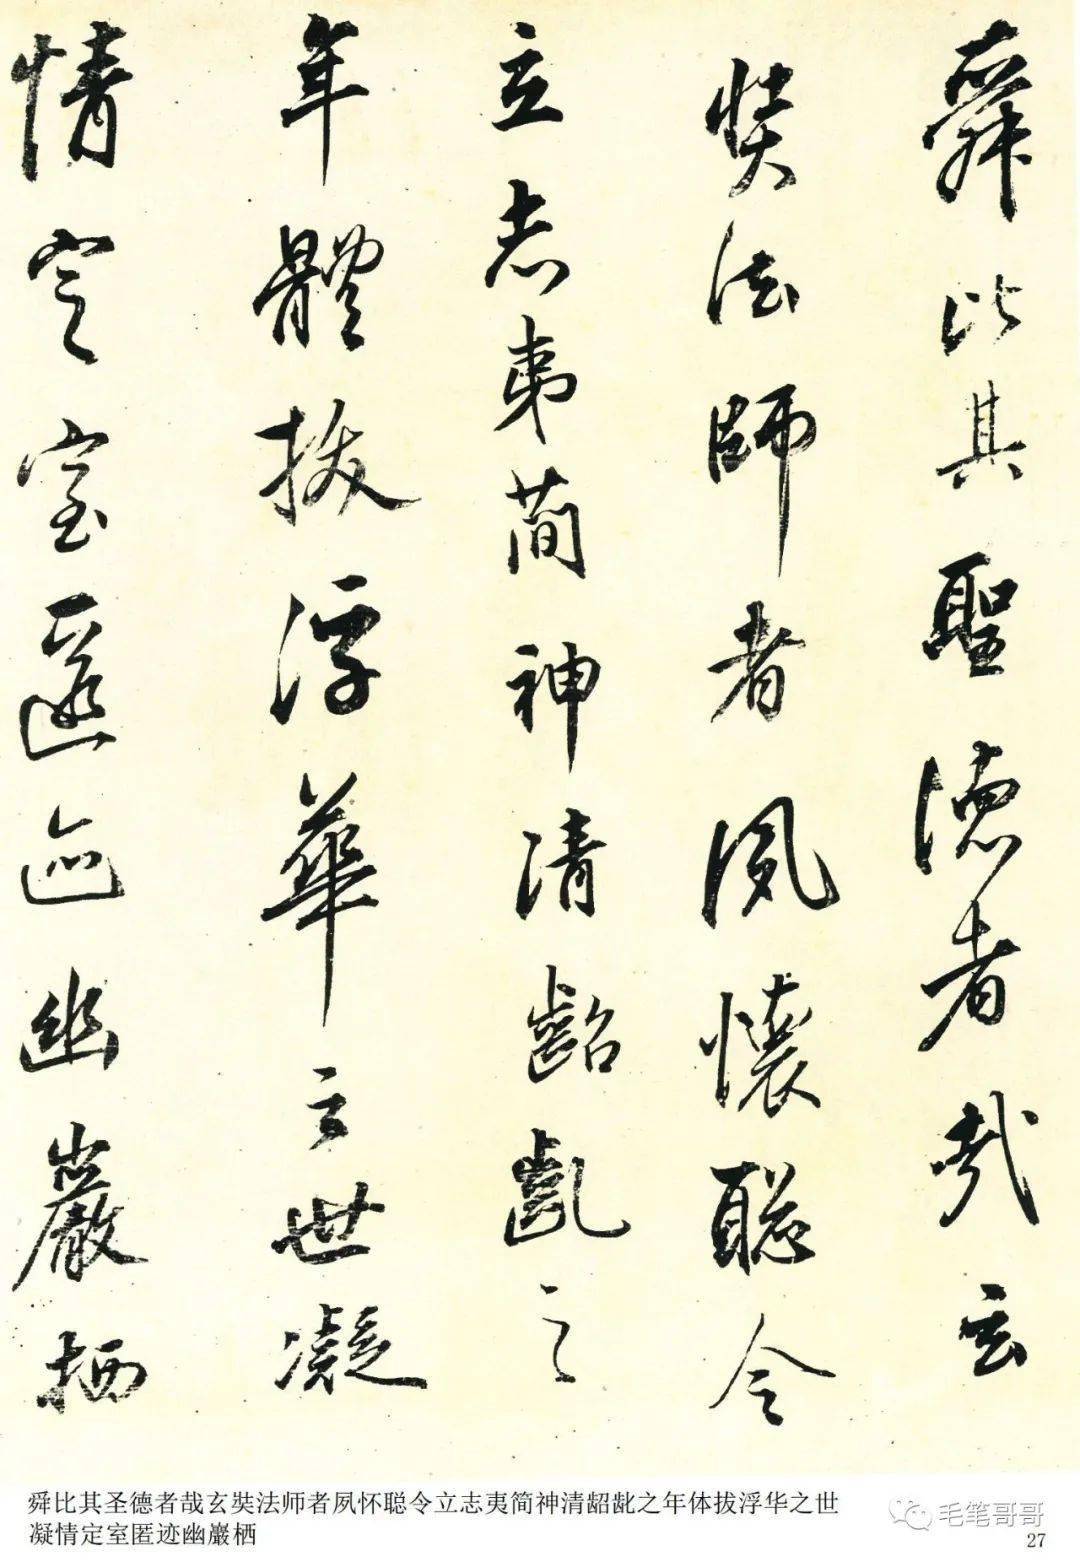 舜比其聖德者哉玄
奘法師者夙懷聰令
立志夷簡神清齠齔之
年體拔浮華之世凝
情定室匿迹幽巖栖
舜比其圣德者哉玄奘法师者夙怀聪令立志夷简神清龆龀之年体拔浮华之世
凝情定室匿迹幽巖栖
毛笔哥哥
27